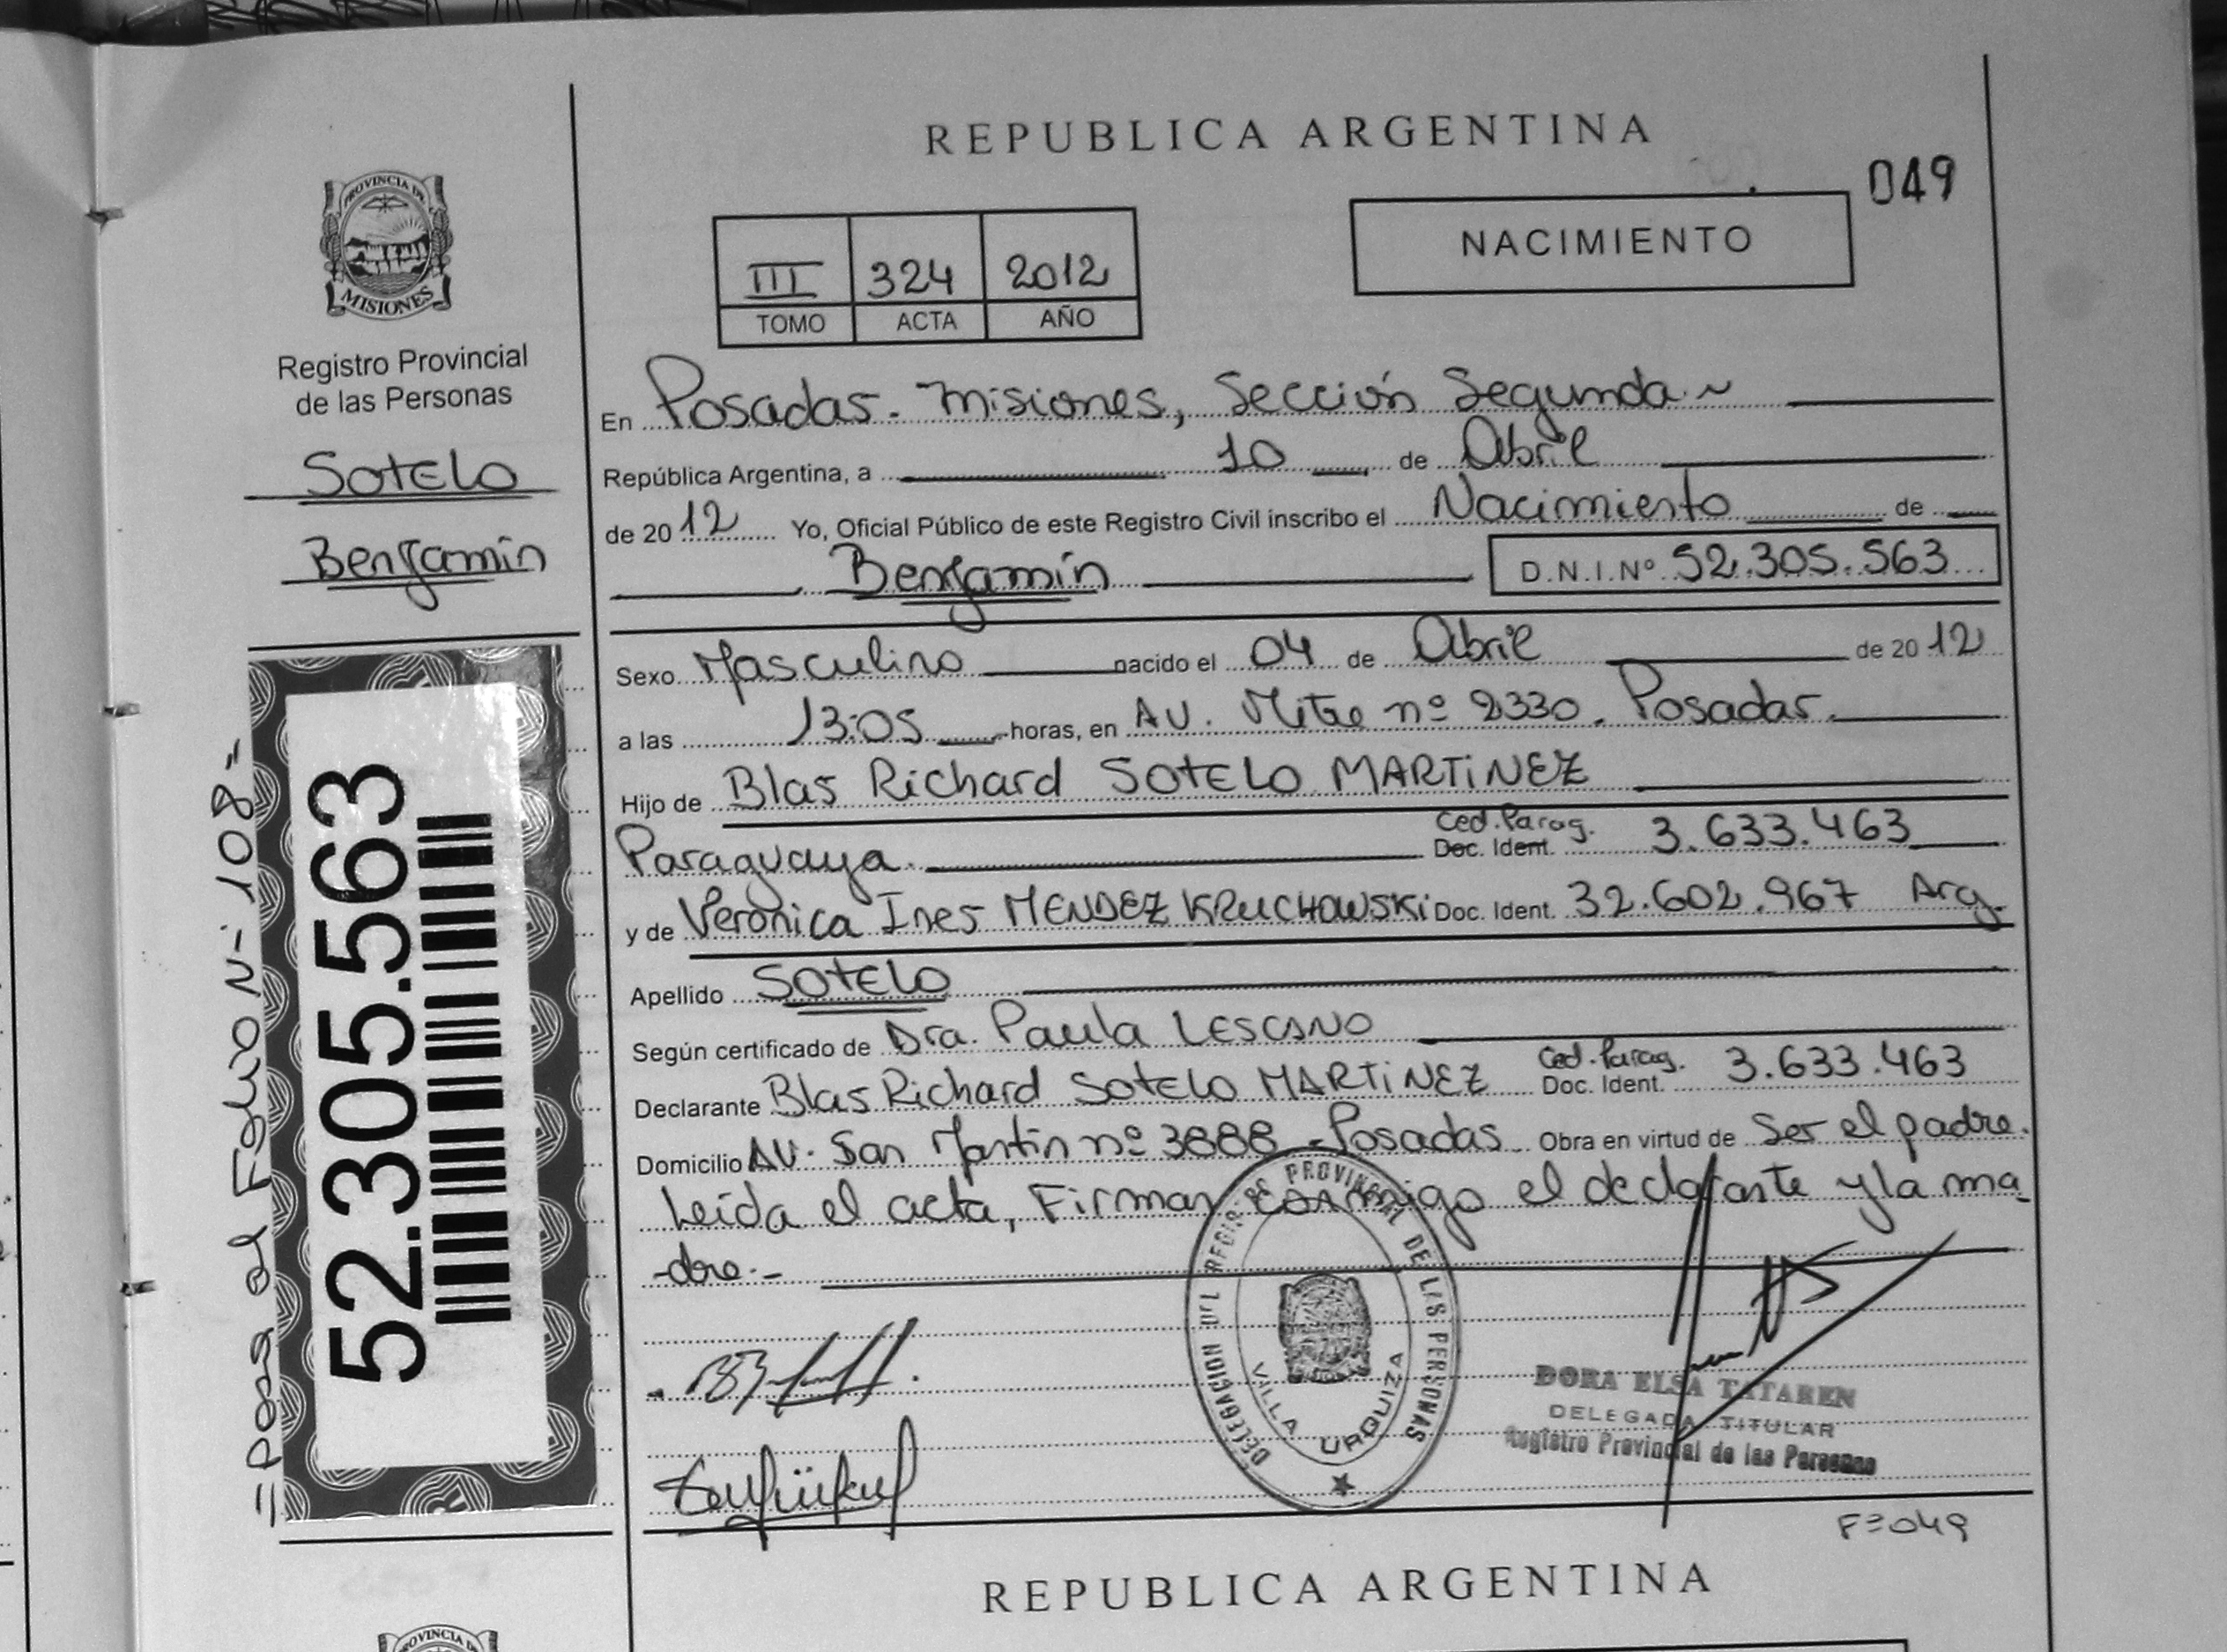 REPUBLICA ARGENTINA
049
NACIMIENTO
III 324 2012
TOMO ACTA AÑO
PROVINCIA DE
MISIONES
Registro Provincial
de las Personas
SOTELO
Benjamín
= Pasa al Folio Nº 108 =
52.305.563
En Posadas. Misiones, Sección Segunda ~
República Argentina, a 10 de Abril
de 2012 Yo, Oficial Público de este Registro Civil inscribo el Nacimiento de
Benjamín D.N.I.Nº 52.305.563
Sexo Masculino nacido el 04 de Abril de 2012
a las 13:05 horas, en AV. Mitre nº 2330. Posadas.
Hijo de Blas Richard SOTELO MARTINEZ
Ced. Parag.
Paraguaya. Doc. Ident. 3.633.463
y de Verónica Ines MENDEZ KRUCHOWSKI Doc. Ident. 32.602.967 Arg.
Apellido SOTELO
Según certificado de Dra. Paula LESCANO
Ced. Parag.
Declarante Blas Richard SOTELO MARTINEZ Doc. Ident. 3.633.463
Domicilio AV. San Martín nº 3888 - Posadas Obra en virtud de Ser el padre.
Leída el acta, Firman conmigo el declarante y la ma-
-dre.-
DELEGACION DEL REGISTRO PROVINCIAL DE LAS PERSONAS
VILLA URQUIZA
DORA ELSA TATAREN
DELEGADA TITULAR
Registro Provincial de las Personas
Fº 049
REPUBLICA ARGENTINA
PROVINCIA DE